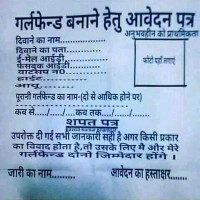 गर्लफेन्ड बनाने हेतु आवेदन पत्र
अनुभवहीन को प्राथमिकता
दिवाने का नाम............
दिवाने का पता............
ई-मेल आईडी............
फेसबुक आईडी............
वाटसप न0............
हाईट............
आयु............
फोटो यहाँ लगाएं
पूरानी गर्लफेन्ड का नाम-(दो से आधिक होने पर)
कब से...../...../.....कब तक...../...../.....
शपत पत्र
उपरोक्त दी गई सभी जानकारी सही है अगर किसी प्रकार
का विवाद होता है,तो उसके लिए मै और मेरे
गर्लफेन्ड दोनो जिम्मेदार होंगे ।
जारी का नाम.......... आवेदन का हस्ताक्षर..........